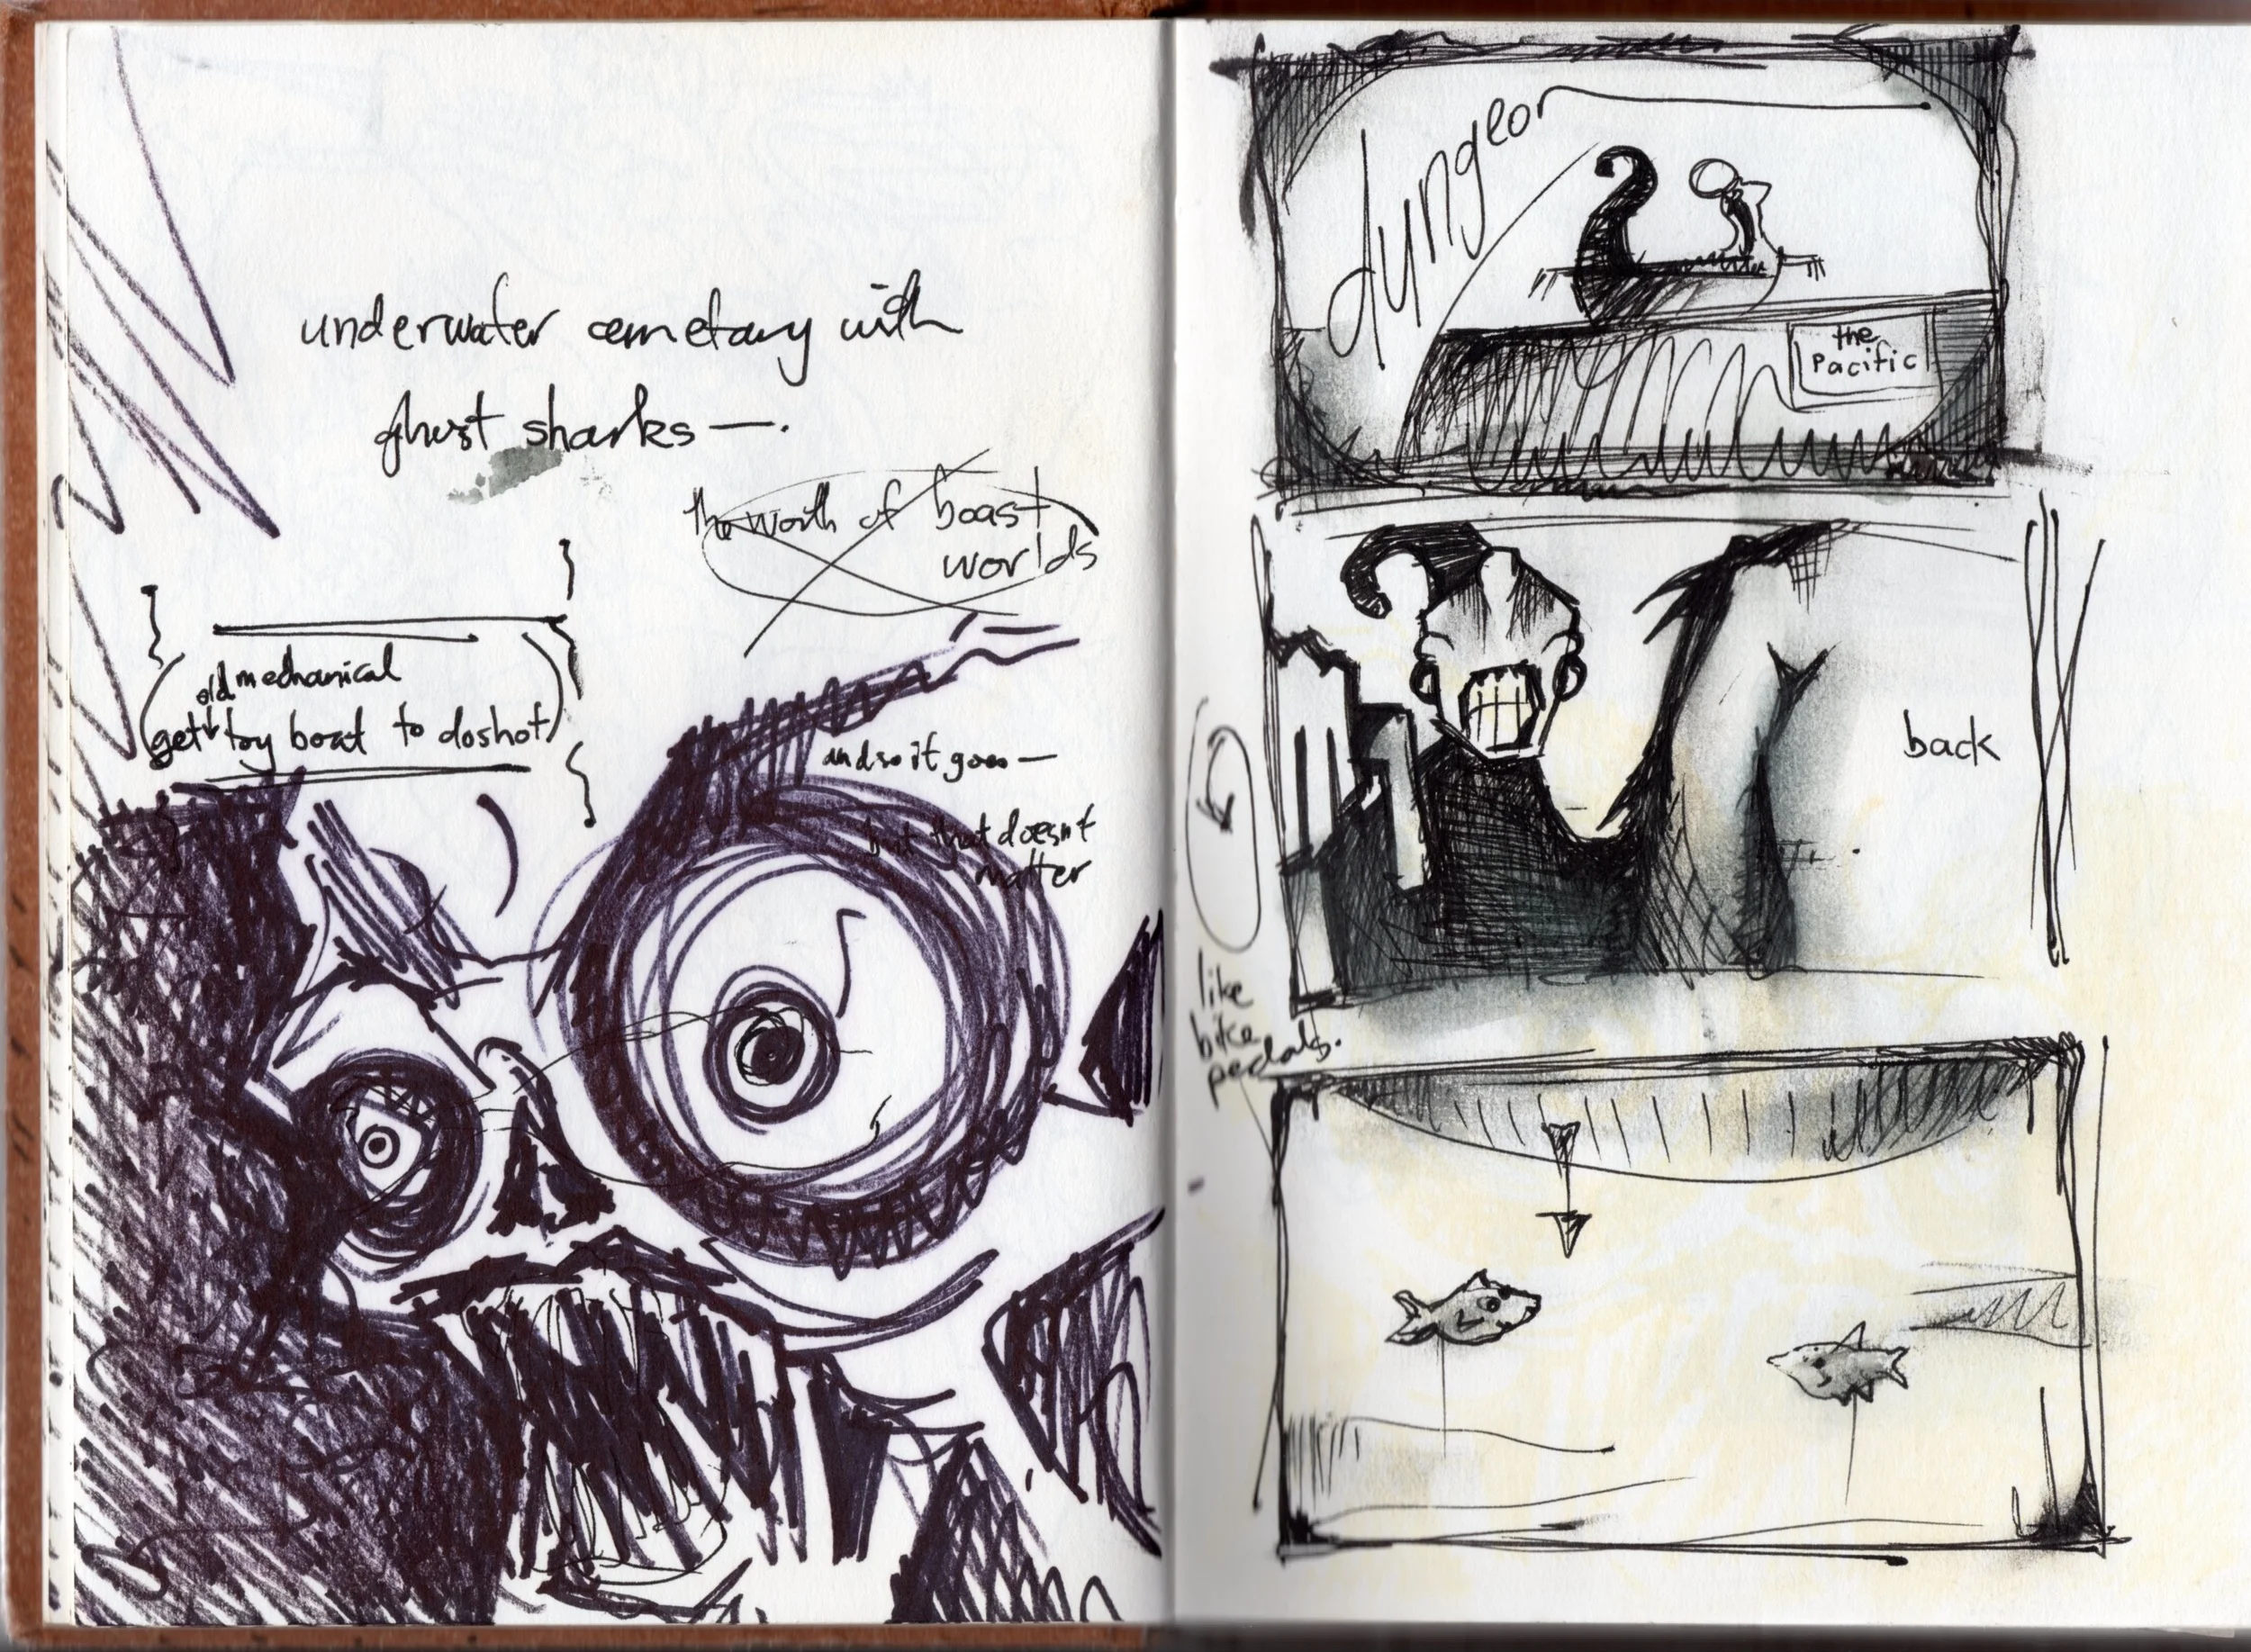 underwater cemetary with
ghost sharks —.
the worth of boast
worlds
old mechanical
get toy boat to do shot
and so it goes —
but that doesn't
matter
dungeon
the
Pacific
back
like
bike
pedals.